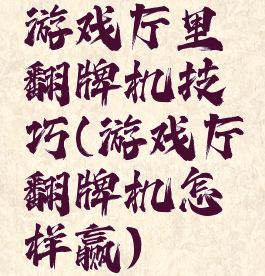 游戏厅里
翻牌机技
巧(游戏厅
翻牌机怎
样赢)